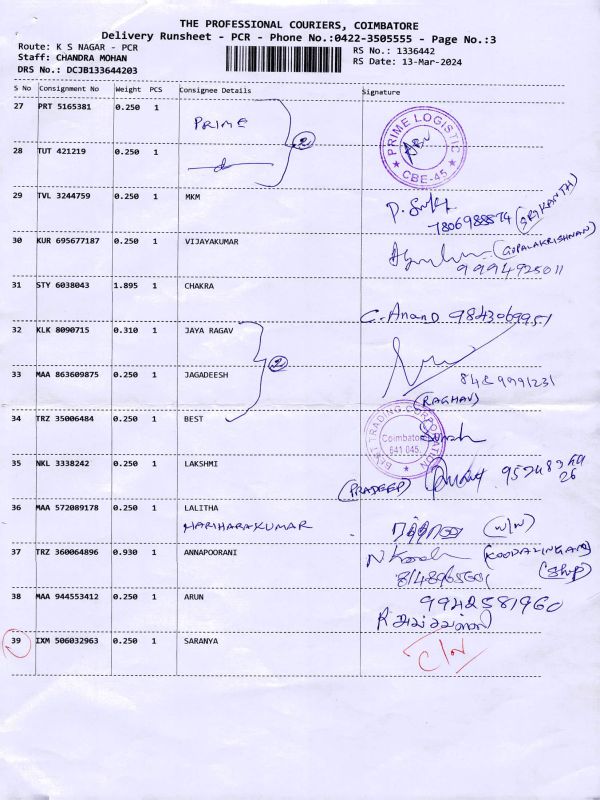 THE PROFESSIONAL COURIERS, COIMBATORE
Delivery Runsheet - PCR - Phone No.:0422-3505555 - Page No.:3
Route: K S NAGAR - PCR
RS No.: 1336442
Staff: CHANDRA MOHAN
RS Date: 13-Mar-2024
DRS No.: DCJB133644203
S No Consignment No Weight PCS Consignee Details Signature
27 PRT 5165381 0.250 1
PRIME
2
PRIME LOGISTIC
CBE-45
28 TUT 421219 0.250 1
29 TVL 3244759 0.250 1 MKM
7806988874 (SRIKANTH)
30 KUR 695677187 0.250 1 VIJAYAKUMAR
(GOPALAKRISHNAN)
9994925011
31 STY 6038043 1.895 1 CHAKRA
C. Anand 9843069951
32 KLK 8090715 0.310 1 JAYA RAGAV
2
33 MAA 863609875 0.250 1 JAGADEESH
8489991231
(RAGHAV)
34 TRZ 35006484 0.250 1 BEST
BEST TRADING CORPORATION
Coimbatore
641 045.
35 NKL 3338242 0.250 1 LAKSHMI
(PRADEEP)
36 MAA 572089178 0.250 1 LALITHA
HARIHARAKUMAR
(W/W)
37 TRZ 360064896 0.930 1 ANNAPOORANI
(Shop)
38 MAA 944553412 0.250 1 ARUN
9942581960
39 IXM 506032963 0.250 1 SARANYA
C/N